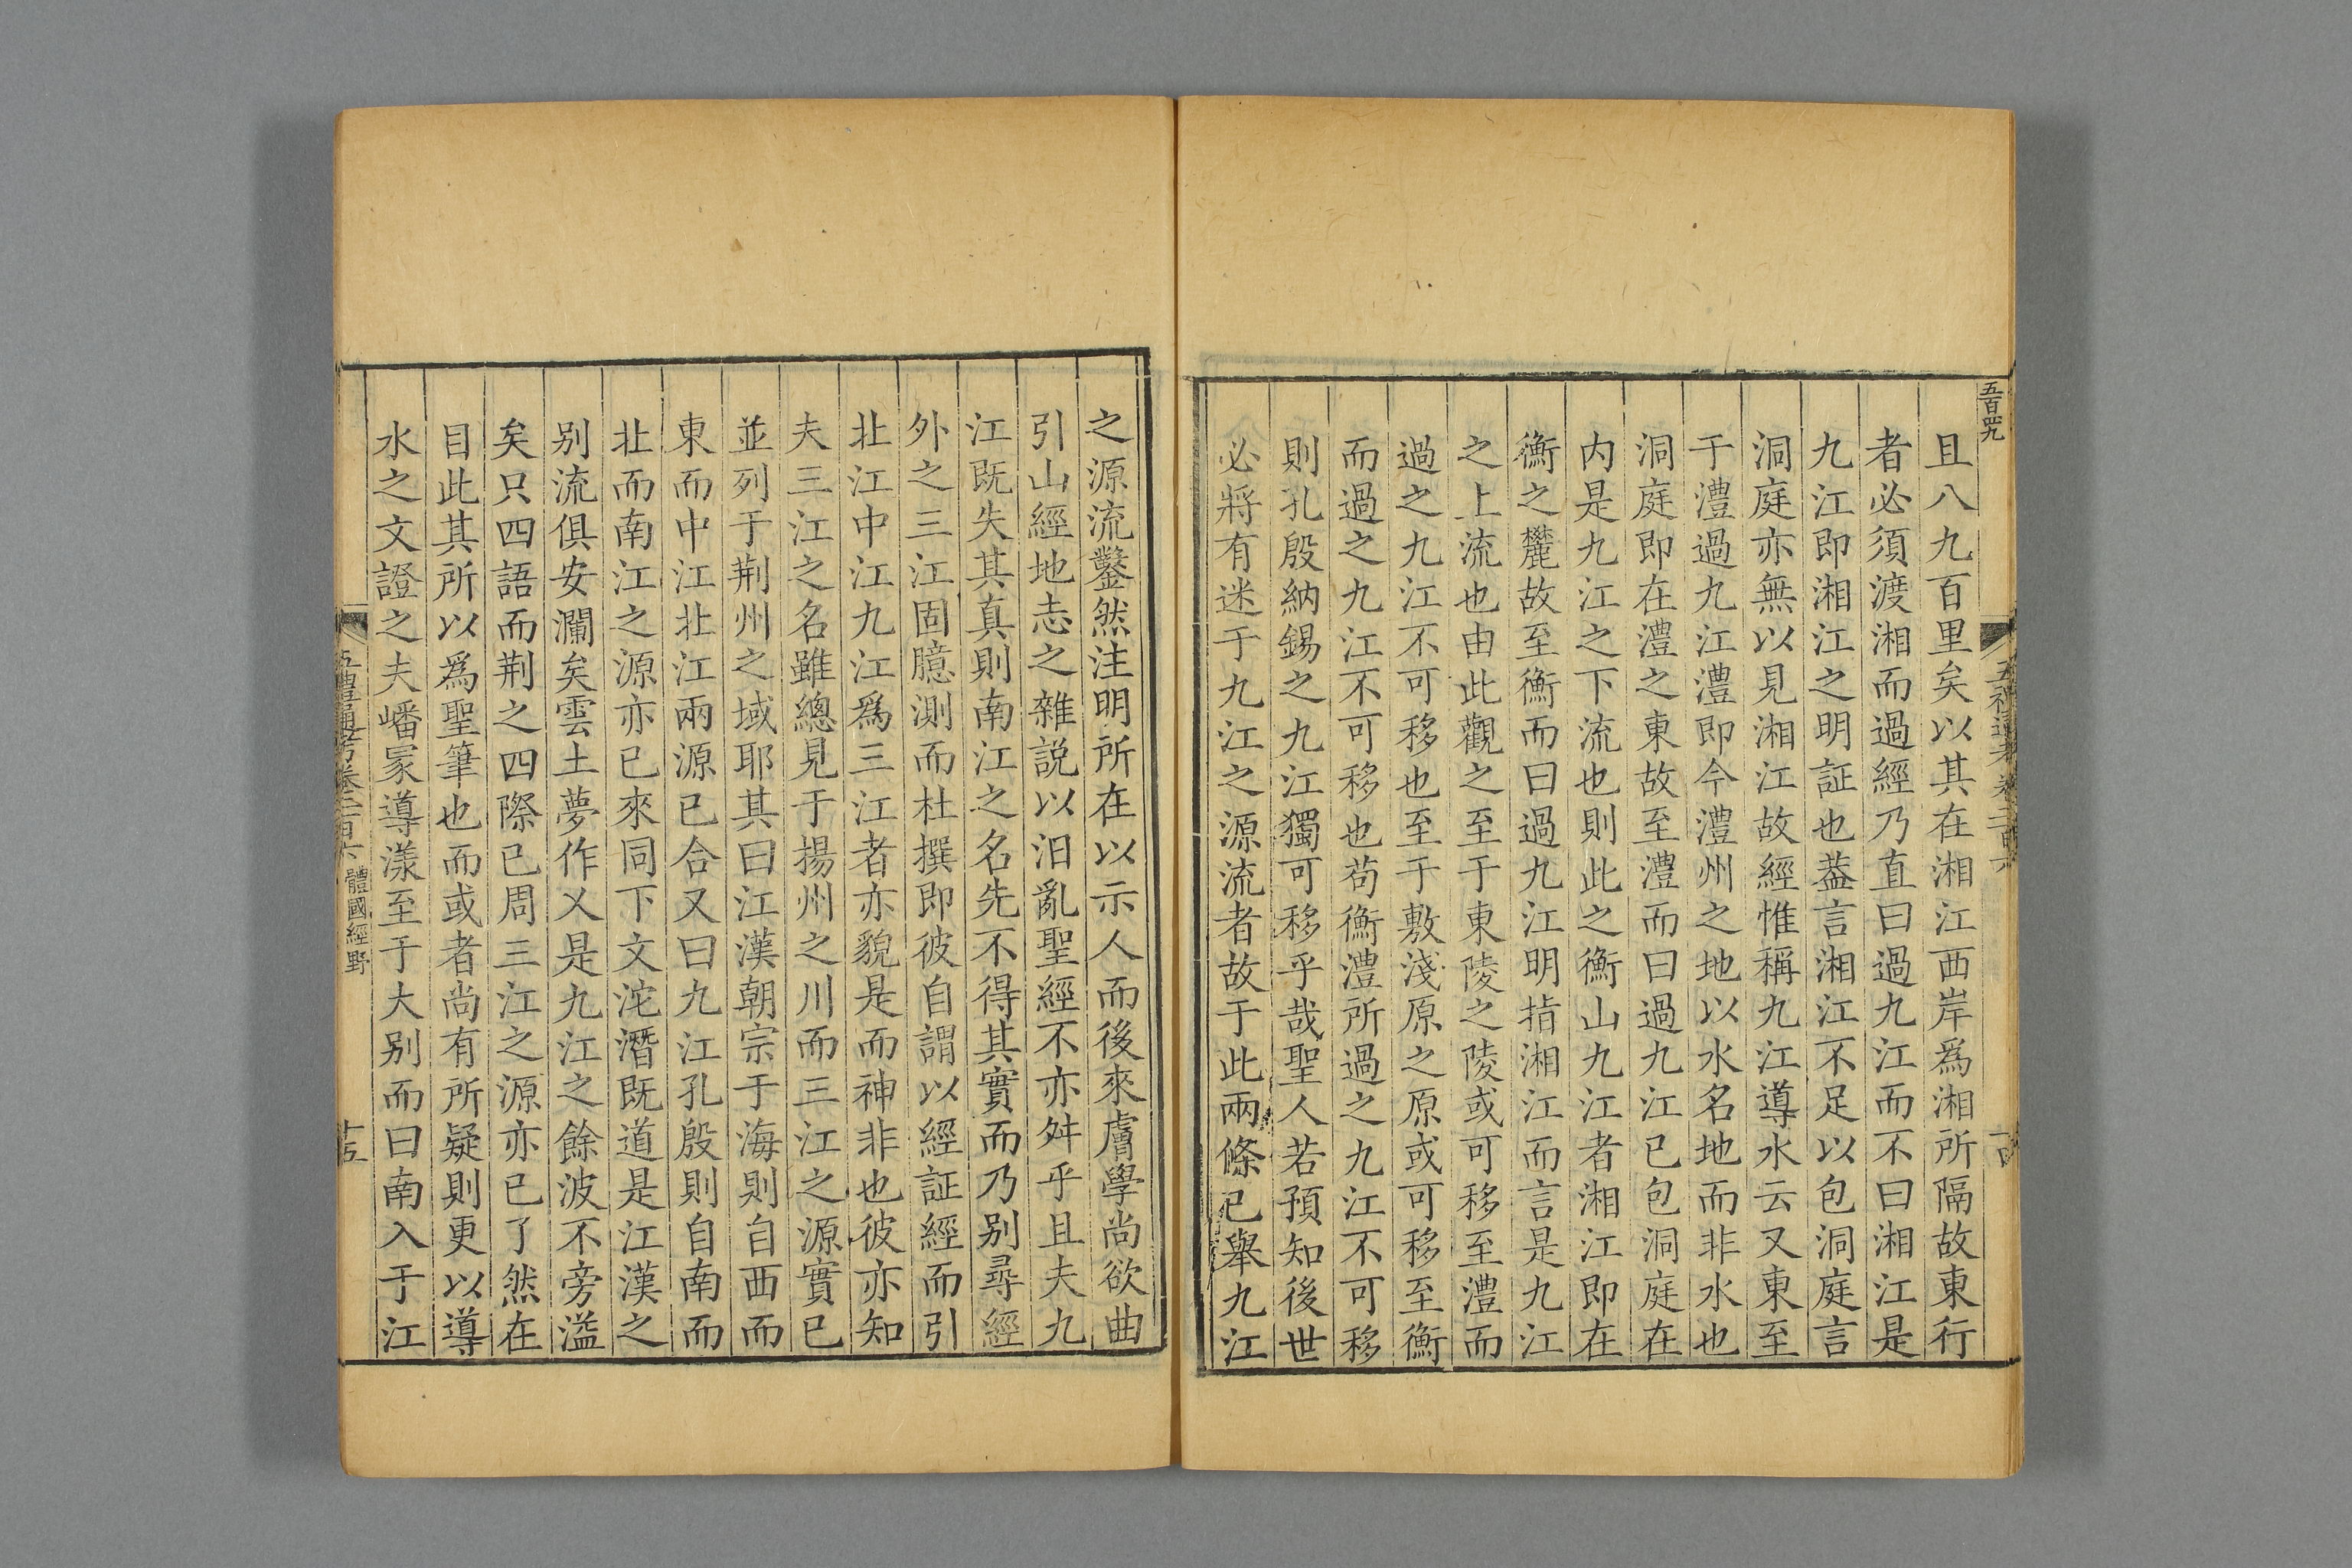 五百咒
且八九百里矣以其在湘江西岸爲湘所隔故東行
者必須渡湘而過經乃直曰過九江而不曰湘江是
九江即湘江之明証也葢言湘江不足以包洞庭言
洞庭亦無以見湘江故經惟稱九江導水云又東至
于澧過九江澧即今澧州之地以水名地而非水也
洞庭即在澧之東故至澧而曰過九江已包洞庭在
内是九江之下流也則此之衡山九江者湘江即在
衡之麓故至衡而曰過九江明指湘江而言是九江
之上流也由此觀之至于東陵之陵或可移至澧而
過之九江不可移也至于敷淺原之原或可移至衡
而過之九江不可移也苟衡澧所過之九江不可移
則孔殷納錫之九江獨可移乎哉聖人若預知後世
必將有迷于九江之源流者故于此兩條已舉九江
之源流鑿然注明所在以示人而後來膚學尚欲曲
引山經地志之雜説以汩亂聖經不亦舛乎且夫九
江既失其真則南江之名先不得其實而乃别尋經
外之三江固臆測而杜撰即彼自謂以經証經而引
北江中江九江爲三江者亦貌是而神非也彼亦知
夫三江之名雖總見于揚州之川而三江之源實已
並列于荆州之域耶其曰江漢朝宗于海則自西而
東而中江北江兩源已合又曰九江孔殷則自南而
北而南江之源亦已來同下文沱潛既道是江漢之
别流俱安瀾矣雲土夢作乂是九江之餘波不旁溢
矣只四語而荆之四際已周三江之源亦已了然在
目此其所以爲聖筆也而或者尚有所疑則更以導
水之文證之夫嶓冡導漾至于大别而曰南入于江
五禮通考卷二百六 體國經野 十五